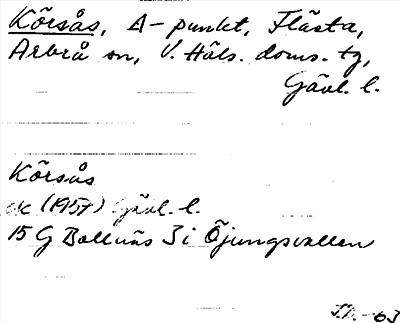 Körsås, Δ-punkt, Flästa,
Arbrå sn, V. Häls. doms. tg,
Gävl. l.
Körsås
ek (1957) Gävl. l.
15 G Bollnäs 3 i Öjungsvallen
J.N. -63